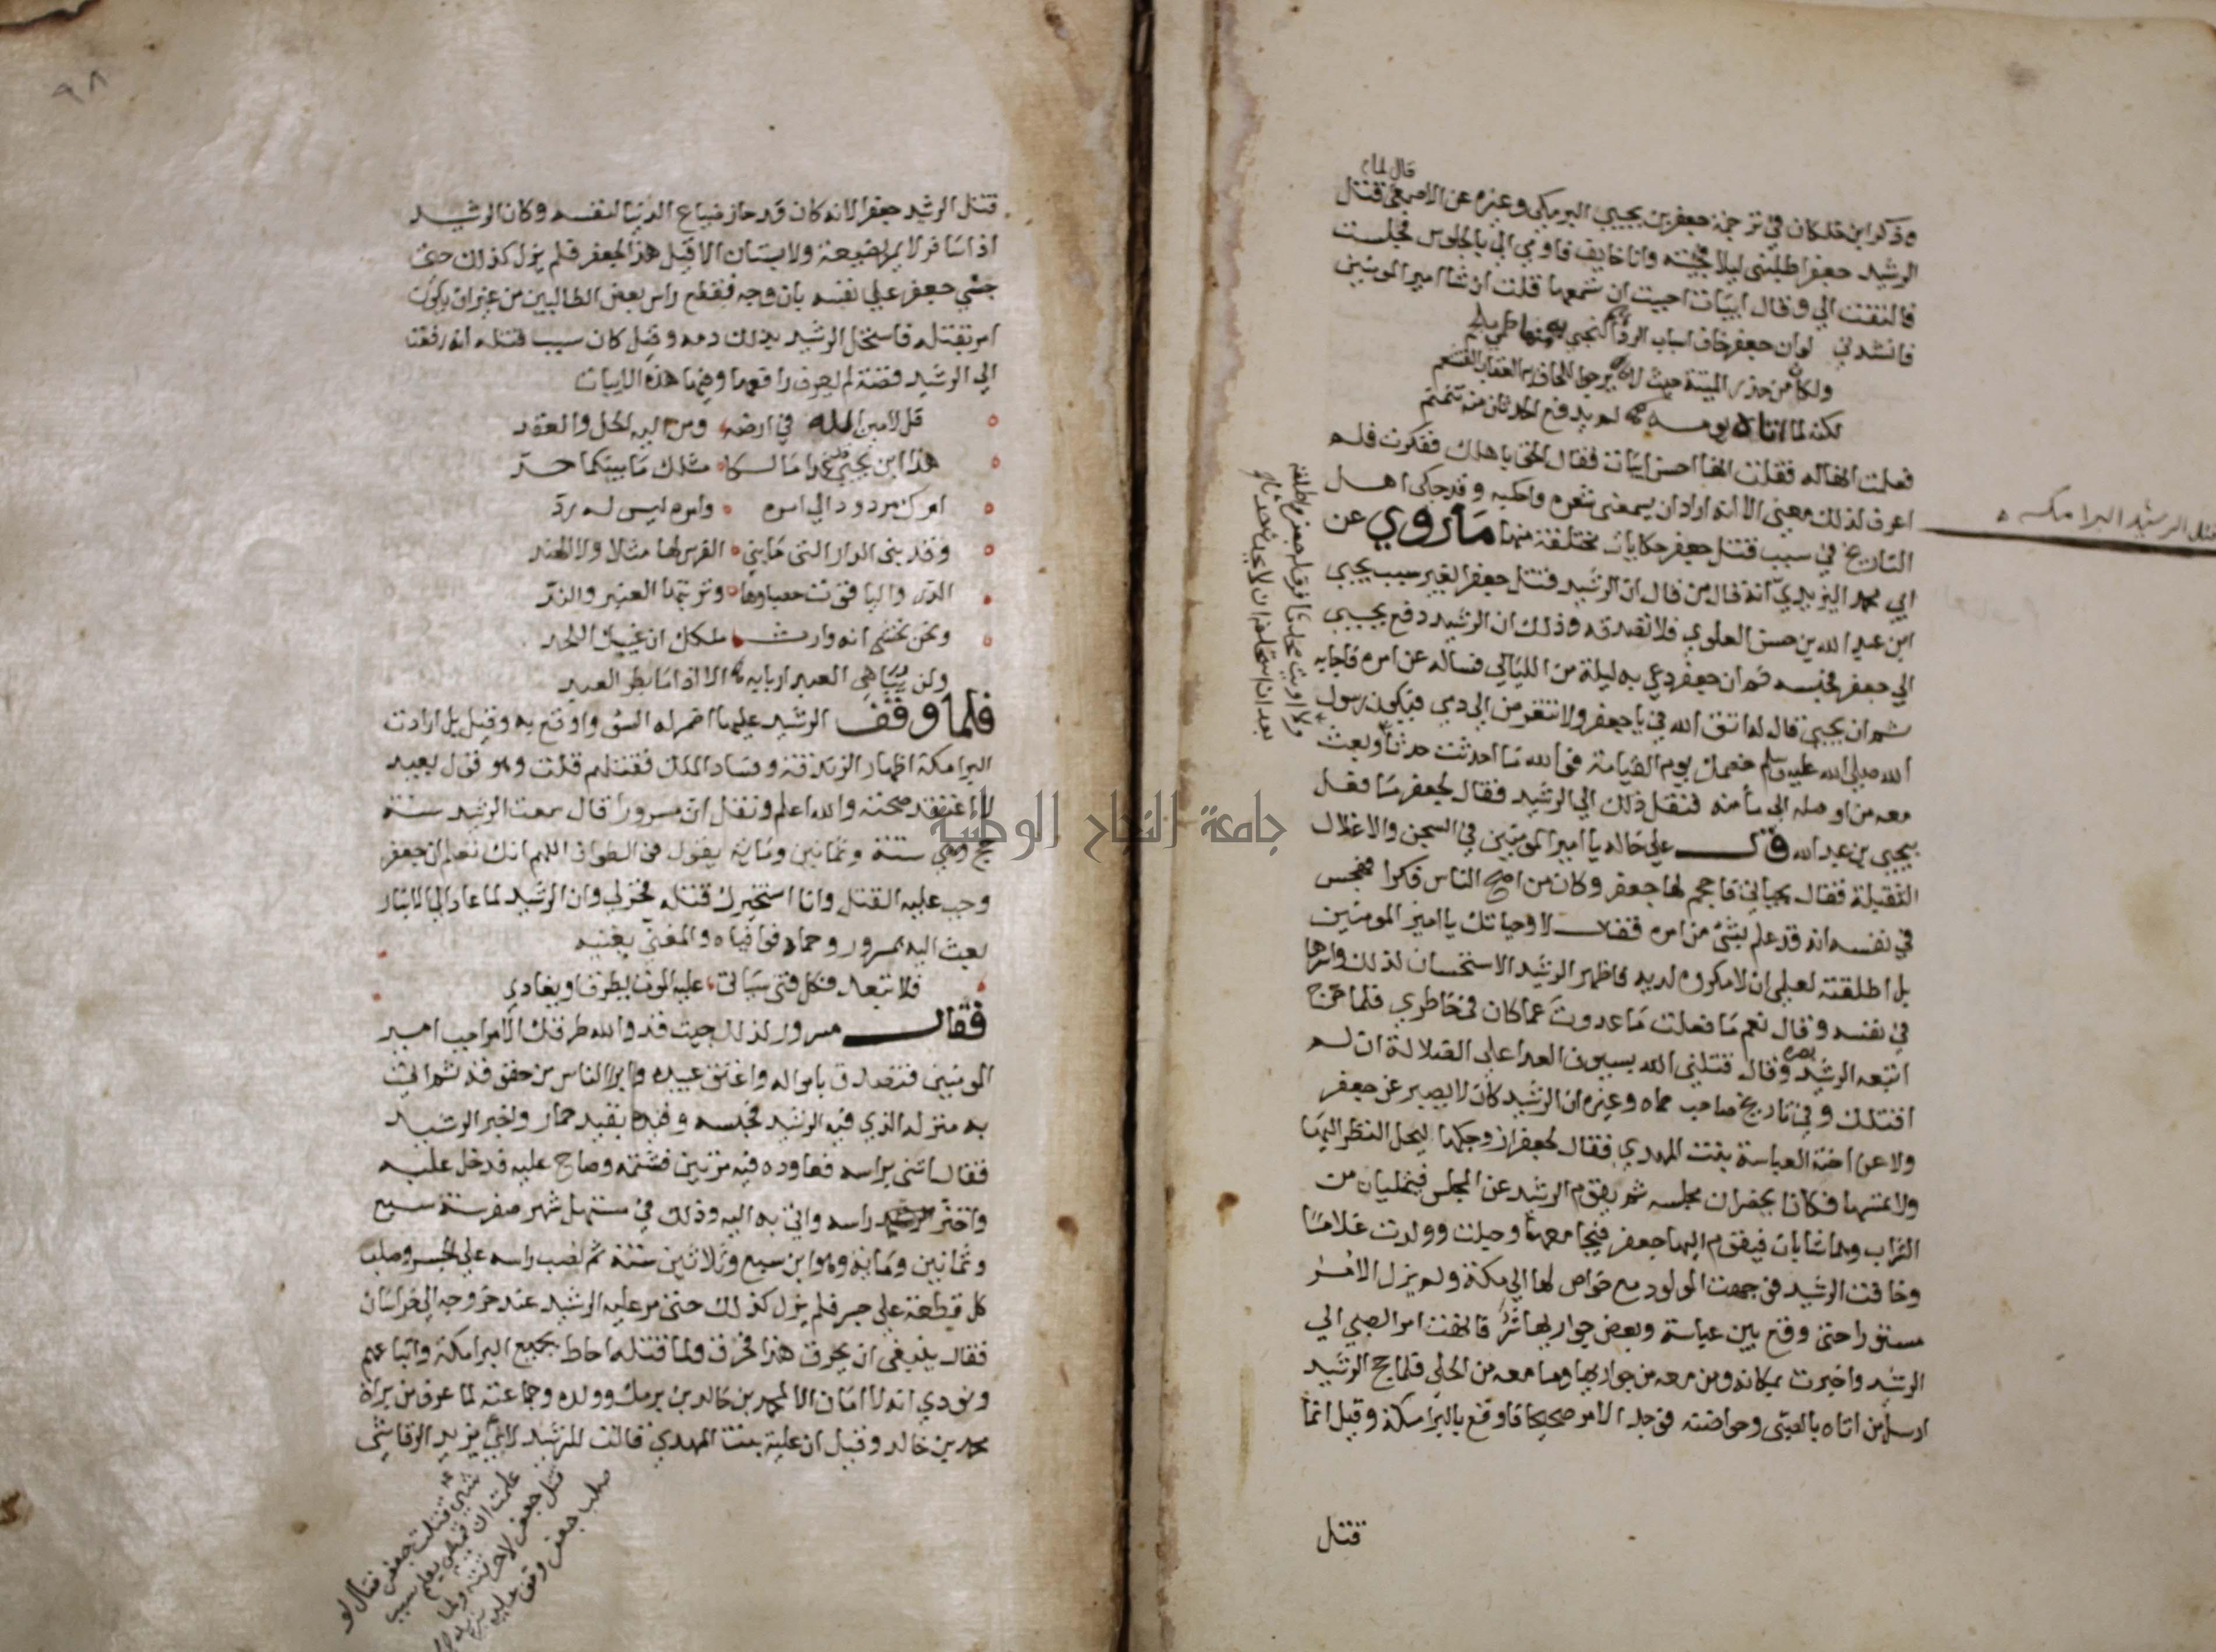 قال لما
وذكر ابن خلكان في ترجمة جعفر بن يحيي البرمكي وغيره عن الاصمعي قتل
الرشيد جعفرا طلبني ليلا فجيته وانا خايف فاومي الي بالجلوس فجلست
فالتفت الي وقال ابيات احببت ان تسمعها قلت ان شا امير المومنين
فانشدني لو ان جعفر خاف اسباب الردا لنجي به منها طمر ملجم
ولكان من حذر المنية حيث لا يرجوا اللحاق به العقاب القشعم
لكنه لما اتاه يومه لم يدفع الحدثان منه منجم
فعلمت انها له فقلت انها احسن ابيات فقال الحق باهلك ففكرت فلم
اعرف لذلك معني الا انه اراد ان يسمعني شعره واحكيه وقد حكي اهل
التاريخ في سبب قتل جعفر حكايات مختلفة منها ما روي عن
ابي محمد اليزيدي انه قال من قال ان الرشيد قتل جعفرا لغير سبب يحيي
ابن عبد الله بن حسن العلوي فلا تصدقه وذلك ان الرشيد دفع يحيي
الي جعفر فحبسه ثم ان جعفر دعي به ليلة من الليالي فساله عن امره فاجابه
ثم ان يحيي قال له اتق الله في يا جعفر ولا تتعرض الي دمي فيكون رسول
الله صلي الله عليه وسلم خصمك يوم القيامة فو الله ما احدثت حدثا وبعث
معه من اوصله الي مأمنه فنقل ذلك الي الرشيد فقال لجعفر ما فعل
يحيي بن عبد الله قال علي حاله يا امير المومنين في السجن والاغلال
الثقيلة فقال بحياتي فاحجم لها جعفر وكان من اصح الناس فكرا فهجس
في نفسه انه قد علم بشئ من امره فقال لا وحياتك يا امير المومنين
بل اطلقته لعلمي ان لا مكروه لديه فاظهر الرشيد الاستحسان لذلك واسرها
في نفسه وقال نعم ما فعلت ما عدوت عما كان في خاطري فلما خرج
اتبعه الرشيد بصره وقال قتلني الله بسيوف العدا علي الضلالة ان لم
اقتلك وفي تاريخ صاحب حماه وغيره ان الرشيد كان لا يصبر عن جعفر
ولا عن اخته العباسة بنت المهدي فقال لجعفر ازوجكها ليحل النظر اليها
ولا تمسها فكانا يحضران مجلسه ثم يقوم الرشيد عن المجلس فيمليان من
الشراب وهما شابان فيقوم اليها جعفر فيجامعها وحبلت وولدت غلاما
وخافت الرشيد فوجهت المولود مع خواص لها الي مكة ولم يزل الامر
مستورا حتي وقع بين عباسة وبعض جواريها شر فانهت امر الصبي الي
الرشيد واخبرت بمكانه ومن معه من جواريها وما معه من الحلي فلما حج الرشيد
ارسل من اتاه بالصبي وحواضنه فوجد الامر صحيحا فاوقع بالبرامكة وقيل انما
قتل
قتل الرشيد البرامكه
جامعة النجاح الوطنية
٩٨
قتل الرشيد جعفرا لانه كان قد حاز ضياع الدنيا لنفسه وكان الرشيد
اذا سافر لا يمر بضيعة ولا بستان الا قيل هذا لجعفر فلم يزل كذلك حتي
جني جعفر علي نفسه بان وجه فقطع راس بعض الطالبيين من غير ان يكون
امر بقتله فاستحل الرشيد بذلك دمه وقيل كان سبب قتله انه رفعت
الي الرشيد قصة لم يعرف رافعها وفيها هذه الابيات
قل لامين الله في ارضه ومن اليه الحل والعقد
هذا ابن يحيي قد غدا مالكا مثلك ما بينكما حد
امرك مردود الي امره وامره ليس له رد
وقد بني الدار التي ما بني الفرس لها مثلا ولا الهند
الدر والياقوت حصباوها وتربتها العنبر والند
ونحن نخشي انه وارث ملكك ان غيبك اللحد
ولن يباهي العبد اربابه الا اذا ما بطر العبد
فلما وقف الرشيد عليها اضمر له السو واوقع به وقيل بل ارادت
البرامكة اظهار الزندقة وفساد الملك فقتلهم قلت وهو قول بعيد
لا اعتقد صحته والله اعلم ونقل ان مسرورا قال سمعت الرشيد سنة
حج وهي ستة وثمانين ومائة يقول في الطواف اللهم انك تعلم ان جعفر
وجب عليه القتل وانا استخيرك في قتله فخر لي وان الرشيد لما عاد الي الانبار
بعث اليه بمسرور وحماد فوافياه والمغني يغنيه
فلا تبعد فكل فتي سياتي عليه الموت يطرق او يغادي
فقال مسرور لذلك جيت قد والله طرقك الامر اجب امير
المومنين فتصدق بامواله واعتق عبيده وابرا الناس من حقوقه ثم اتي
به منزله الذي فيه الرشيد فحبسه وقيده بقيد حمار واخبر الرشيد
فقال ائتني براسه فعاوده فيه مرتين فشتمه وصاح عليه فدخل عليه
واحتز راسه واتي به اليه وذلك في مستهل شهر صفر سنة سبع
وثمانين ومائة وهو ابن سبع وثلاثين سنة ثم نصب راسه علي الجسر وصلب
كل قطعة علي جسر فلم يزل كذلك حتي مر عليه الرشيد عند خروجه الي خراسان
فقال ينبغي ان يحرق هذا فحرق ولما قتله احاط بجميع البرامكة واتباعهم
ونودي انه لا امان الا لمحمد بن خالد بن برمك وولده وجماعته لما عرف من براة
محمد بن خالد وقيل ان علية بنت المهدي قالت للرشيد لاي
شي قتلت جعفر فقال لو
علمت ان قميصي يعلم سبب
قتل جعفر لاحرقته ولما
صلب جعفر وقف عليه يزيد